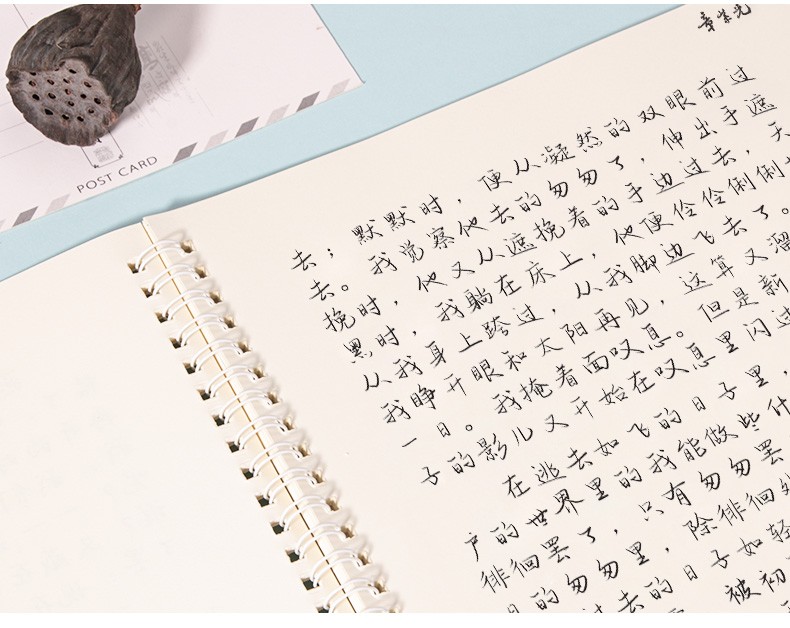 POST CARD
章紫光
去；默默时，便从凝然的双眼前过
去。我觉察他去的匆匆了，伸出手遮
挽时，他又从遮挽着的手边过去，天
黑时，我躺在床上，他便伶伶俐俐
从我身上跨过，从我脚边飞去了。
我睁开眼和太阳再见，这算又溜
一日。我掩着面叹息。但是新
子的影儿又开始在叹息里闪过
在逃去如飞的日子里，
户的世界里的我能做些什
徘徊罢了，只有匆匆罢
的匆匆里，除徘徊
过去的日子如轻
被初